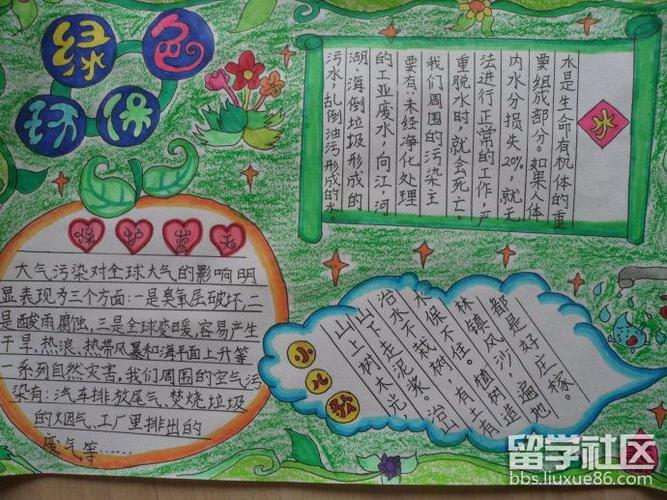 绿色
环保
水
水是生命有机体的重
要组成部分。如果人体
内水分损失20%，就无
法进行正常的工作，严
重脱水时，就会死亡。
我们周围的污染主
要有:未经净化处理
的工业废水，向江、河
湖海倒垃圾形成的
污水，乱倒油污形成的
保护蓝天
大气污染对全球大气的影响明
显表现为三个方面:一是臭氧层破坏,二
是酸雨腐蚀,三是全球变暖,容易产生
干旱、热浪、热带风暴和海平面上升等
一系列自然灾害。我们周围的空气污
染有:汽车排放尾气、焚烧垃圾
的烟气、工厂里排出的
废气等……
小儿歌
山上树木光，
山下走泥浆。治山
治水不栽树，有土
水保不住。植树造
林镇风沙，遍地
都是好庄稼。
留学社区
bbs.liuxue86.com